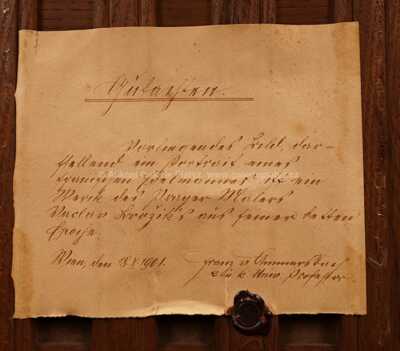 Gutachten.
Vorliegendes Bild, dar-
stellend ein Portrait eines
Edelmannes ist ein
Werk des Prager Malers
Vaclav Broziks aus seiner besten
Epoche.
Wien, den 1901. Franz v.
k. k. Univ. Professor